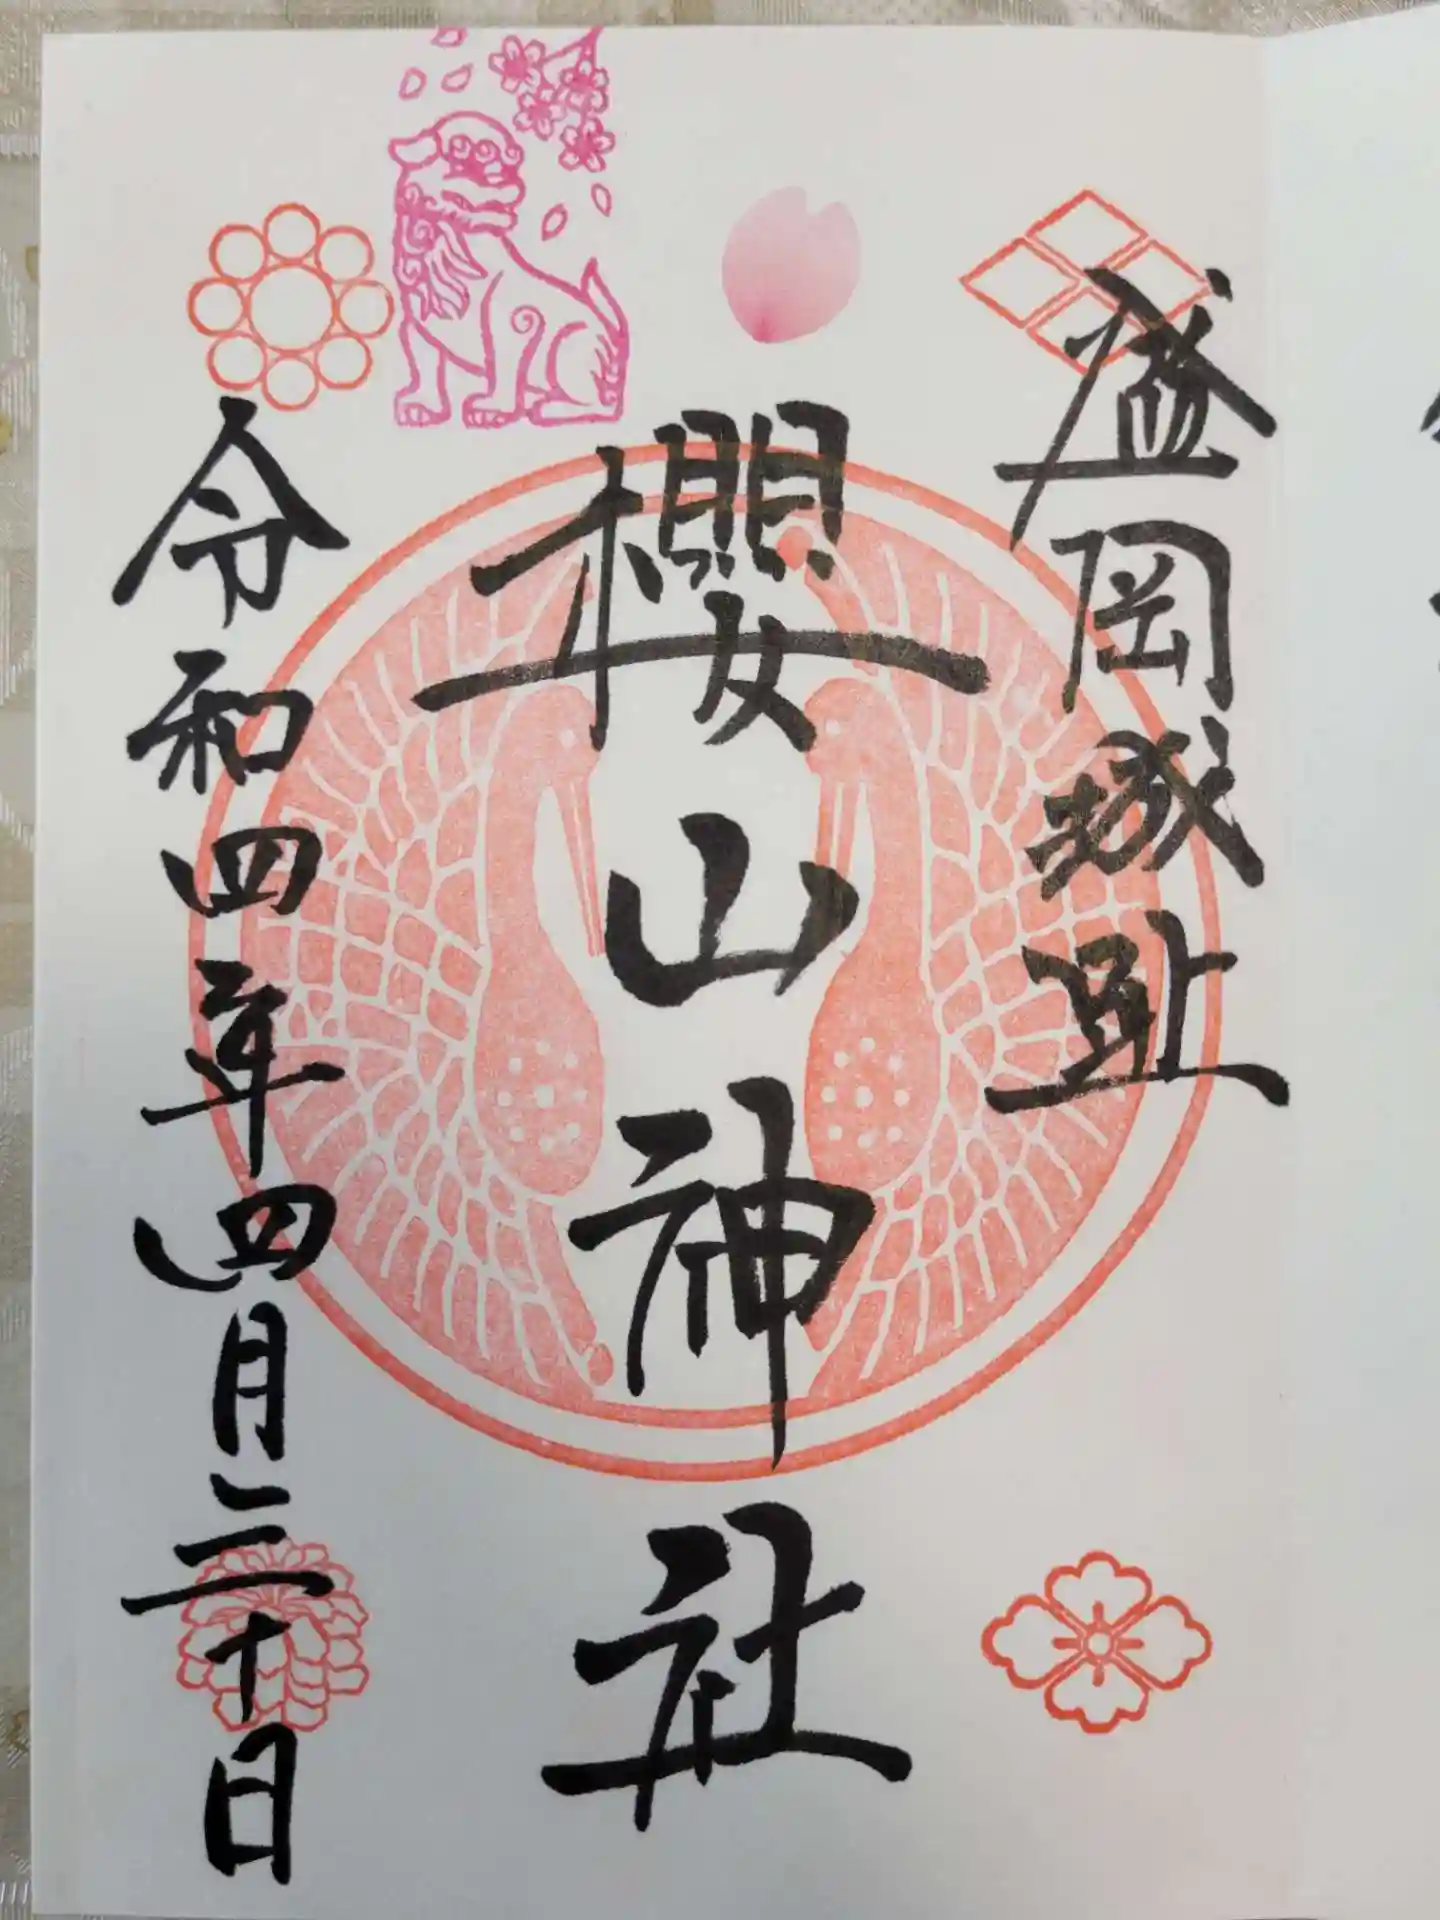 盛岡城址
櫻山神社
令和四年四月三十日